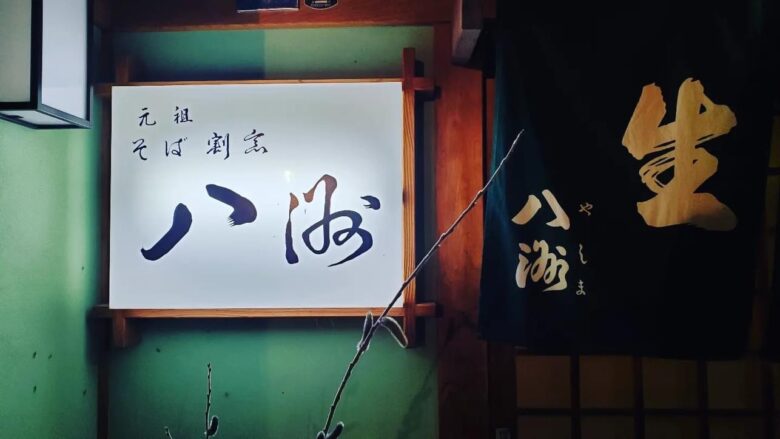 元祖
そば割烹
八洲
生
八洲
やしま